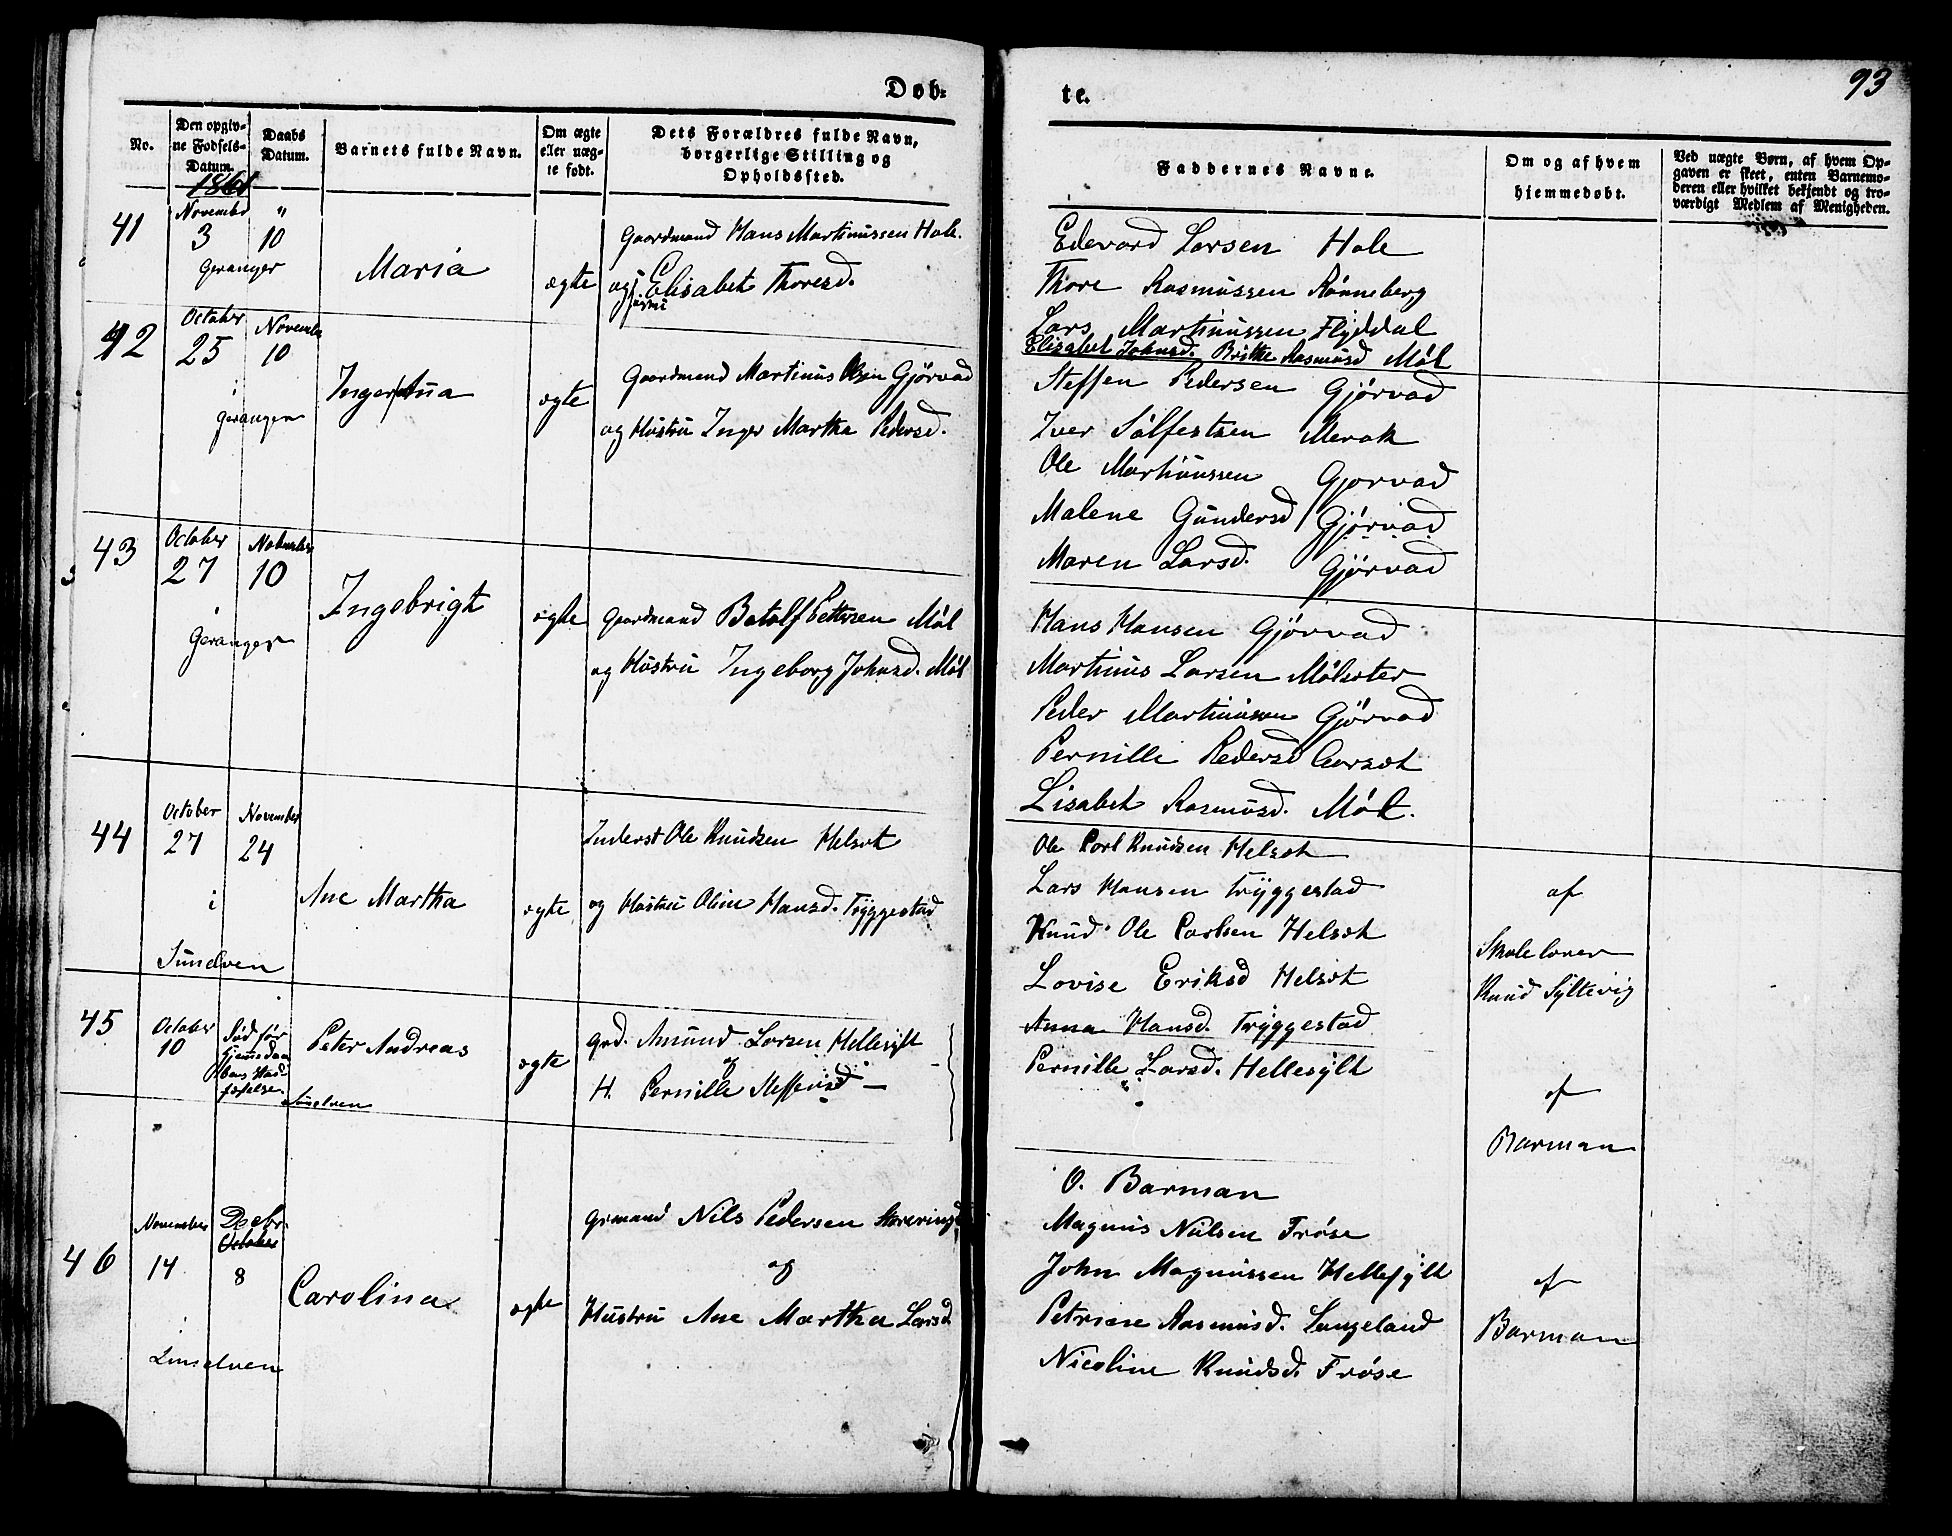 Døb-
te.
93
No.
Den opgiv-
ne Fødsels-
Datum.
Daabs
Datum.
Barnets fulde Navn.
Om ægte
eller uæg-
te født.
Dets Forældres fulde Navn,
borgerlige Stilling og
Opholdssted.
Faddernes Navne.
Om og af hvem
hjemmedøbt.
Ved uægte Børn, af hvem Op-
gaven er skeet, enten Barnemo-
deren eller hvilket bekjendt og tro-
værdigt Medlem af Menigheden.
1861
41
Novembr
3
Geranger
"
10
Maria
ægte
Gaardmand Hans Martinussen Hole.
og Elisabet Thoresd.
Edevard Larsen Hole
Thore Rasmussen Rønneberg
Lars Martinussen Flyddal
Elisabet Johnsd. Britte Rasmusd Møl
42
October
25
i
Geranger
November
10
Inger Ana
ægte
Gaardmand Martinus Olsen Gjørvad
og Hustru Inger Martha Pedersd.
Steffen Pedersen Gjørvad
Iver Sølfestsen Merok
Ole Martinussen Gjørvad
Malene Gundersd Gjørvad
Maren Larsd. Gjørvad
43
October
27
i
Geranger
November
10
Ingebrigt
ægte
Gaardmand Botolf Pettersen Møl
og Hustru Ingeborg Johnsd. Møl
Hans Hansen Gjørvad
Martinus Larsen Mølsæter
Peder Martinussen Gjørvad
Pernille Pedersd Korsæt
Lisabet Rasmusd. Møl.
44
October
27
i
Sunelven
November
24
Ane Martha
ægte
Inderst Ole Knudsen Helsæt
og Hustru Oline Hansd. Tryggestad
Ole Carl Knudsen Helsæt
Lars Hansen Tryggestad
Knud Ole Carlsen Helsæt
Lovise Eriksd Helsæt
Anna Hansd. Tryggestad
af
Skolelærer
Knud Syltevig
45
October
10
Død før
Hjemedaa
bens Stad-
fæstelse.
Peter Andreas
Sunelven
ægte
Grd. Amund Larsen Hellesylt
og
H. Pernille Steffensd —
Pernille Larsd. Hellesylt
"
af
Barman
46
November
14
i
Sunelven
Decbr.
October
8
Carolina
ægte
Grmand Nils Pedersen
og
Hustru Ane Martha Larsd
O. Barman
Magnus Nilsen Frøse
John Magnussen Hellesylt
Petrine Rasmusd. Langeland
Nicoline Knudsd. Frøse
af
Barman